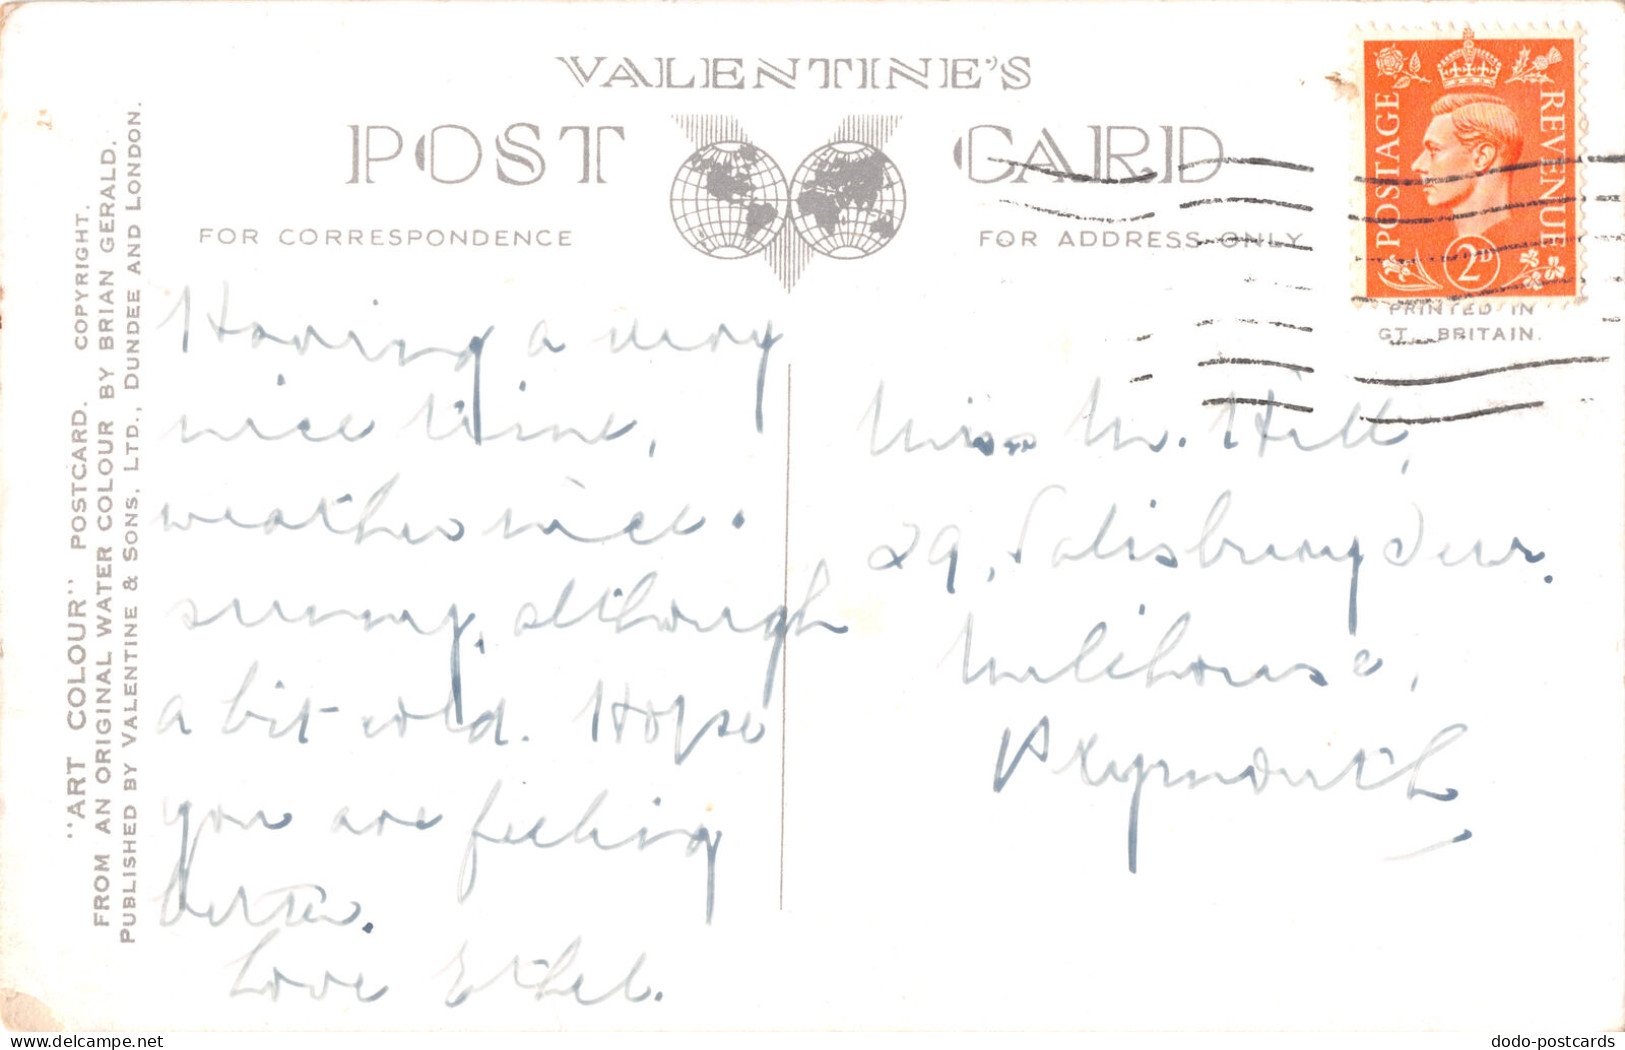 VALENTINE'S
POST CARD
FOR CORRESPONDENCE
FOR ADDRESS ONLY
POSTAGE
REVENUE
2D
PRINTED IN
GT. BRITAIN.
"ART COLOUR" POSTCARD. COPYRIGHT.
FROM AN ORIGINAL WATER COLOUR BY BRIAN GERALD.
PUBLISHED BY VALENTINE & SONS, LTD., DUNDEE AND LONDON.
Having a very
nice time,
weather nice.
sunny, although
a bit cold. Hope
you are feeling
better.
Love Ethel.
Miss M. Hill,
29, Salisbury
Milehouse,
Plymouth
delcampe.net
dodo-postcards